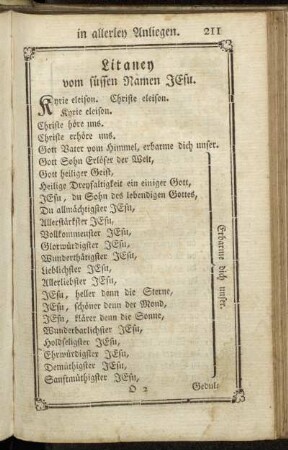 in allerley Anliegen. 211
Litaney
vom süssen Namen JEsu.
Kyrie eleison. Christe eleison.
Kyrie eleison.
Christe höre uns.
Christe erhöre uns.
Gott Vater vom Himmel, erbarme dich unser.
Gott Sohn Erlöser der Welt,
Gott heiliger Geist,
Heilige Dreyfaltigkeit ein einiger Gott,
JEsu, du Sohn des lebendigen Gottes,
Du allmächtigster JEsu,
Allerstärkster JEsu,
Vollkommenster JEsu,
Glorwürdigster JEsu,
Wunderthätigster JEsu,
Lieblichster JEsu,
Allerliebster JEsu,
JEsu, heller denn die Sterne,
JEsu, schöner denn der Mond,
JEsu, klärer denn die Sonne,
Wunderbarlichster JEsu,
Holdseligster JEsu,
Ehrwürdigster JEsu,
Demüthigster JEsu,
Sanftmüthigster JEsu,
Erbarme dich unser.
O 2 Gedul-